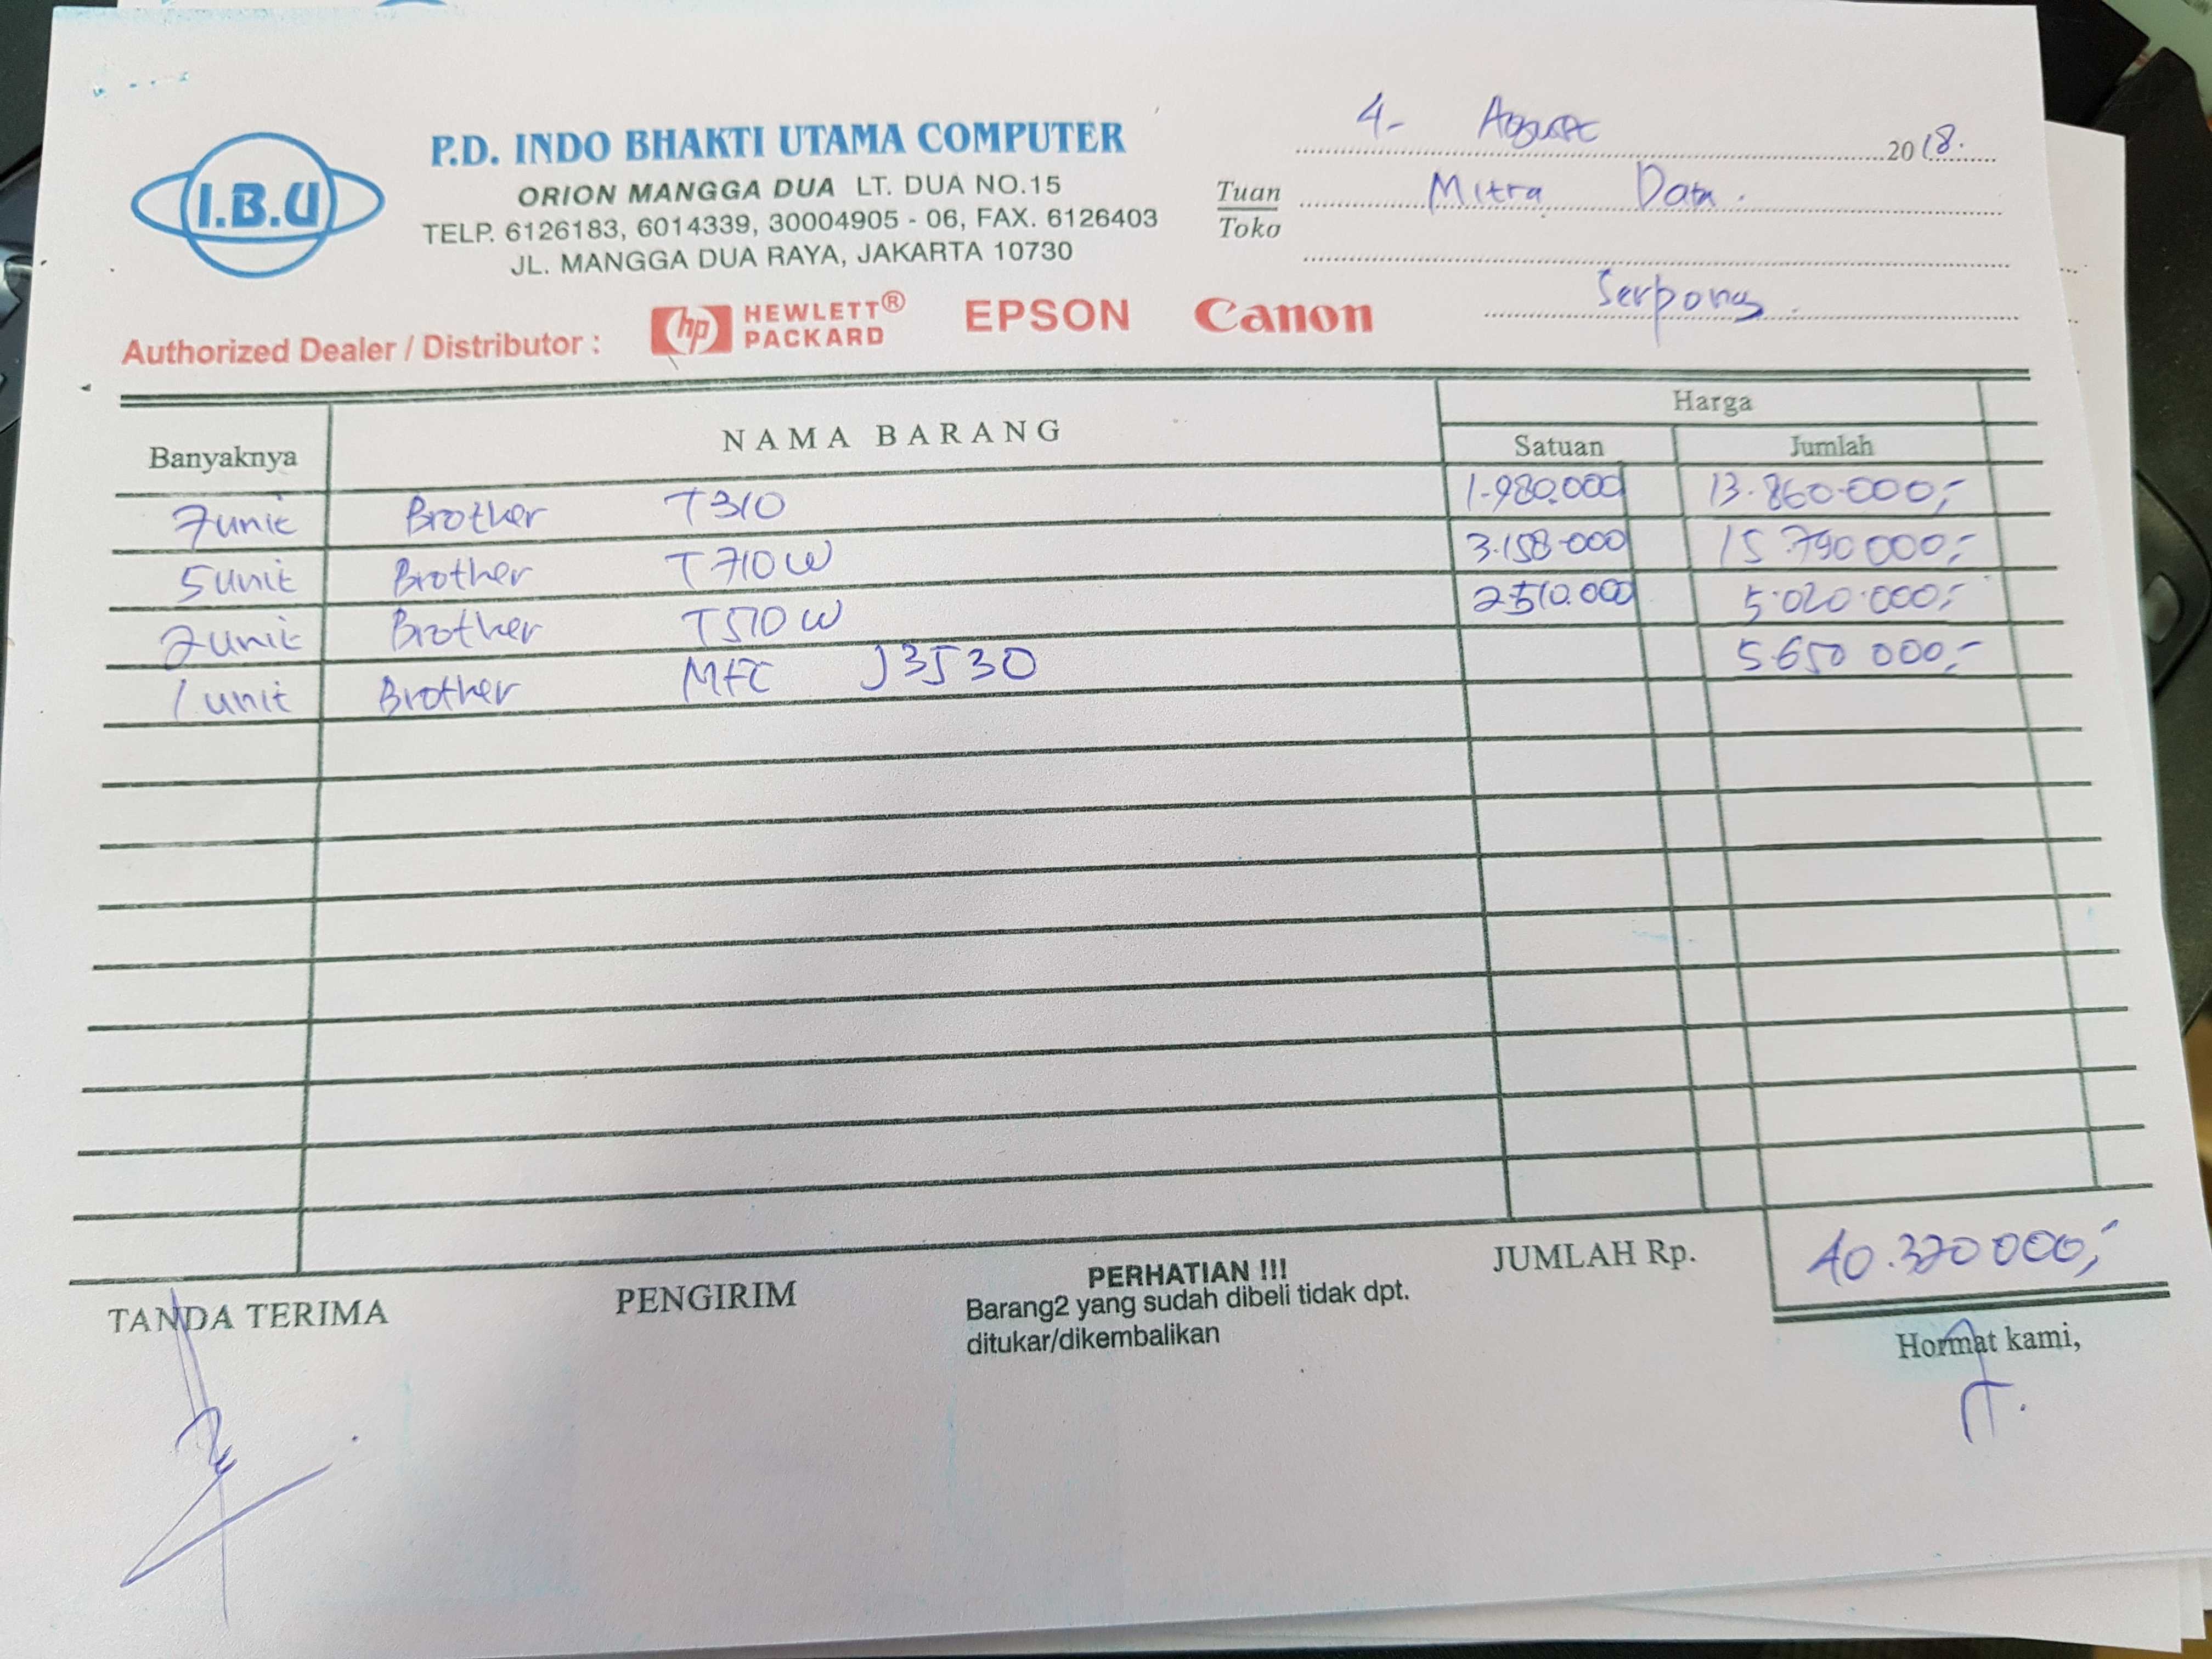 I.B.U
P.D. INDO BHAKTI UTAMA COMPUTER
ORION MANGGA DUA LT. DUA NO.15
TELP. 6126183, 6014339, 30004905 - 06, FAX. 6126403
JL. MANGGA DUA RAYA, JAKARTA 10730
4- 2018.
Tuan Mitra Data.
Toko
Serpong.
Authorized Dealer / Distributor : hp HEWLETT® PACKARD EPSON Canon
Banyaknya NAMA BARANG Harga
Satuan Jumlah
7 unit Brother T310 1.980.000 13.860.000,-
5 unit Brother T710W 3.158.000 15.790.000,-
2 unit Brother T510W 2.510.000 5.020.000,-
1 unit Brother MFC J3530 5.650.000,-
JUMLAH Rp. 40.320.000,-
TANDA TERIMA PENGIRIM PERHATIAN !!!
Barang2 yang sudah dibeli tidak dpt.
ditukar/dikembalikan
Hormat kami,